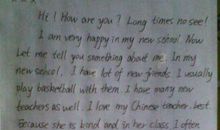 Hi! How are you? Long times no see!
I am very happy in my new school Now
Let me tell you something about me. In my
new school, I have lot of new friends I usually
play basketball with them. I have many new
teachers as well. I love my Chinese teacher. best
Because she is kind and in her class I often